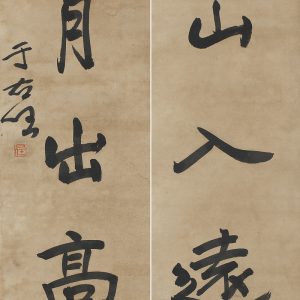 山入遠
月出高
于右任